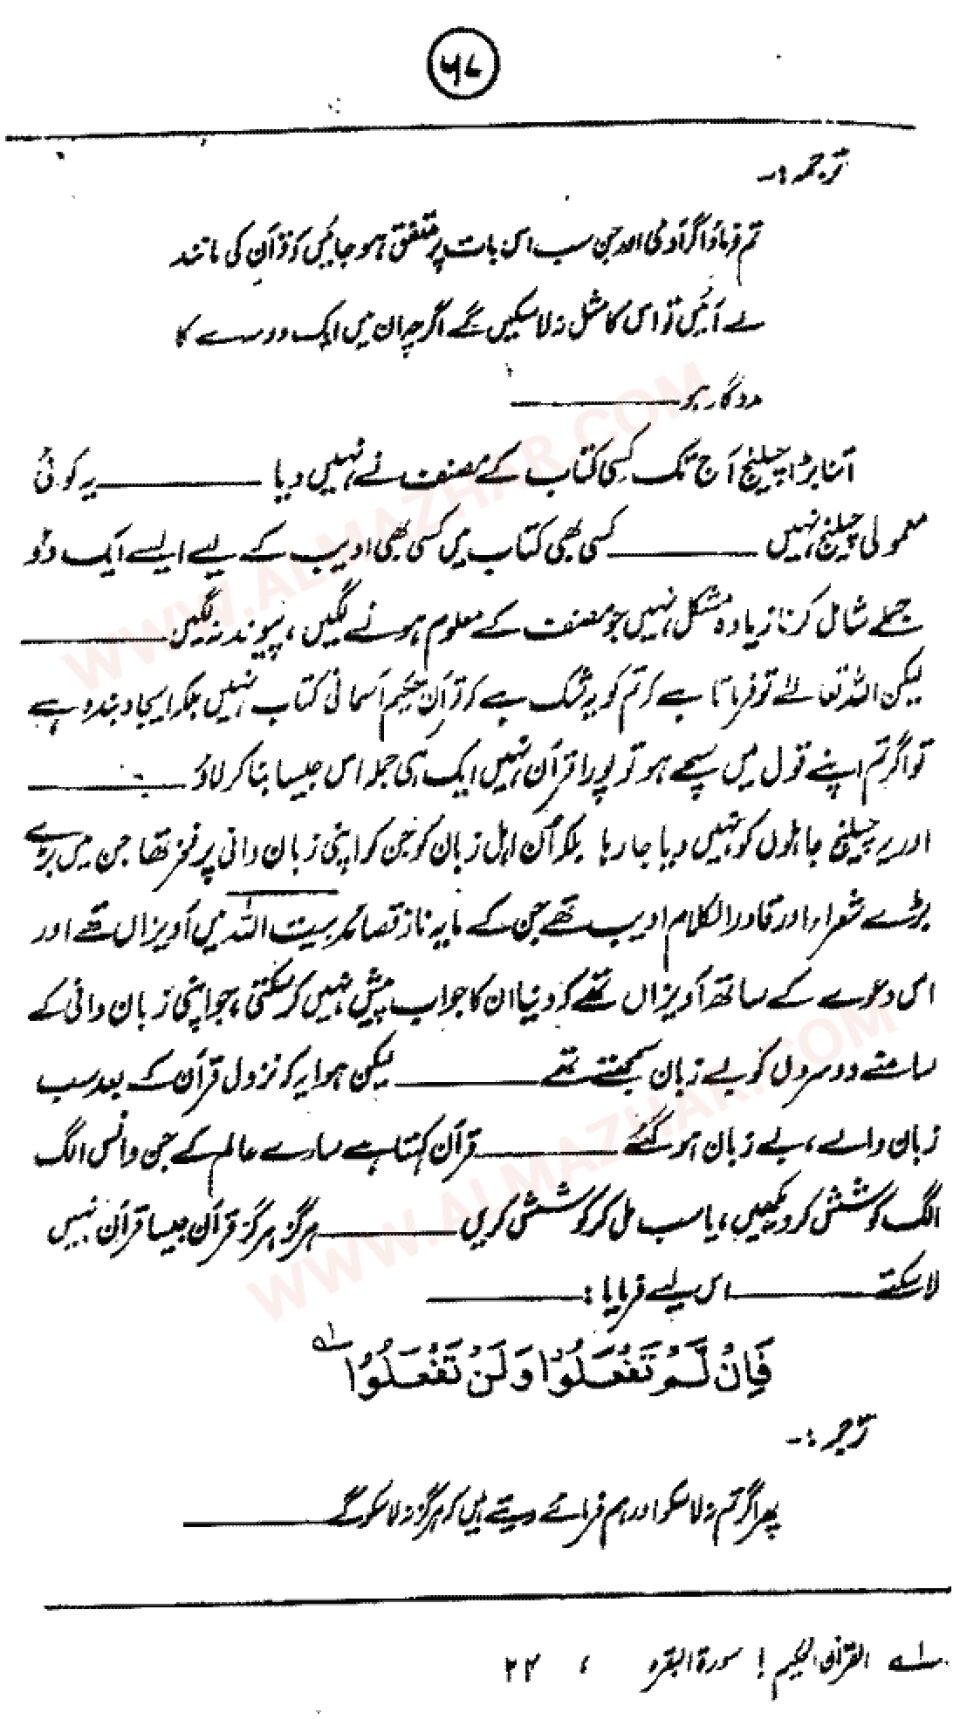 ۵۷
ترجمہ :-
تم فرماؤ اگر آدمی اور جن سب اس بات پر متفق ہو جائیں کہ قرآن کی مانند
لے آئیں تو اس کا مثل نہ لا سکیں گے اگرچہ ان میں ایک دوسرے کا
مددگار ہو ــــــــ
اتنا بڑا چیلنج آج تک کسی کتاب کے مصنف نے نہیں دیا ــــــــ یہ کوئی
معمولی چیلنج نہیں ــــــــ کسی بھی کتاب میں کسی بھی ادیب کے لیے ایسے ایک دو
جملے شامل کرنا زیادہ مشکل نہیں جو مصنف کے معلوم ہونے لگیں ، پیوند نہ لگیں ــــــــ
لیکن اللہ تعالےٰ تو فرماتا ہے کہ تم کو یہ شک ہے کہ قرآن حکیم آسمانی کتاب نہیں بلکہ ایجاد بندہ ہے
تو اگر تم اپنے قول میں سچے ہو تو پورا قرآن نہیں ایک ہی جملہ اس جیسا بنا کر لاؤ ــــــــ
اور یہ چیلنج جاہلوں کو نہیں دیا جا رہا بلکہ اُن اہل زبان کو جن کو اپنی زبان دانی پر فخر تھا جن میں بڑے
بڑے شعراء اور قادر الکلام ادیب تھے جن کے مایہ ناز قصائد بیت اللہ میں آویزاں تھے اور
اس دعوے کے ساتھ آویزاں تھے کہ دنیا ان کا جواب پیش نہیں کر سکتی ، جو اپنی زبان دانی کے
سامنے دوسروں کو بے زبان سمجھتے تھے ــــــــ لیکن ہوا یہ کہ نزول قرآن کے بعد سب
زبان والے ، بے زبان ہو گئے ــــــــ قرآن کہتا ہے سارے عالم کے جن و انس الگ
الگ کوشش کر دیکھیں ، یا سب مل کر کوشش کریں ــــــــ ہرگز ہرگز قرآن جیسا قرآن نہیں
لا سکتے ــــــــ اس لیے فرمایا : ــــــــ
فَاِنْ لَّمْ تَفْعَلُوْا وَلَنْ تَفْعَلُوْا ؎۱
ترجمہ :-
پھر اگر تم نہ لا سکو اور ہم فرمائے دیتے ہیں کہ ہرگز نہ لا سکو گے ــــــــ
؎۱ القرآن الحکیم ! سورة البقرہ ، ۲۴
WWW.ALMAZHAR.COM
WWW.ALMAZHAR.COM